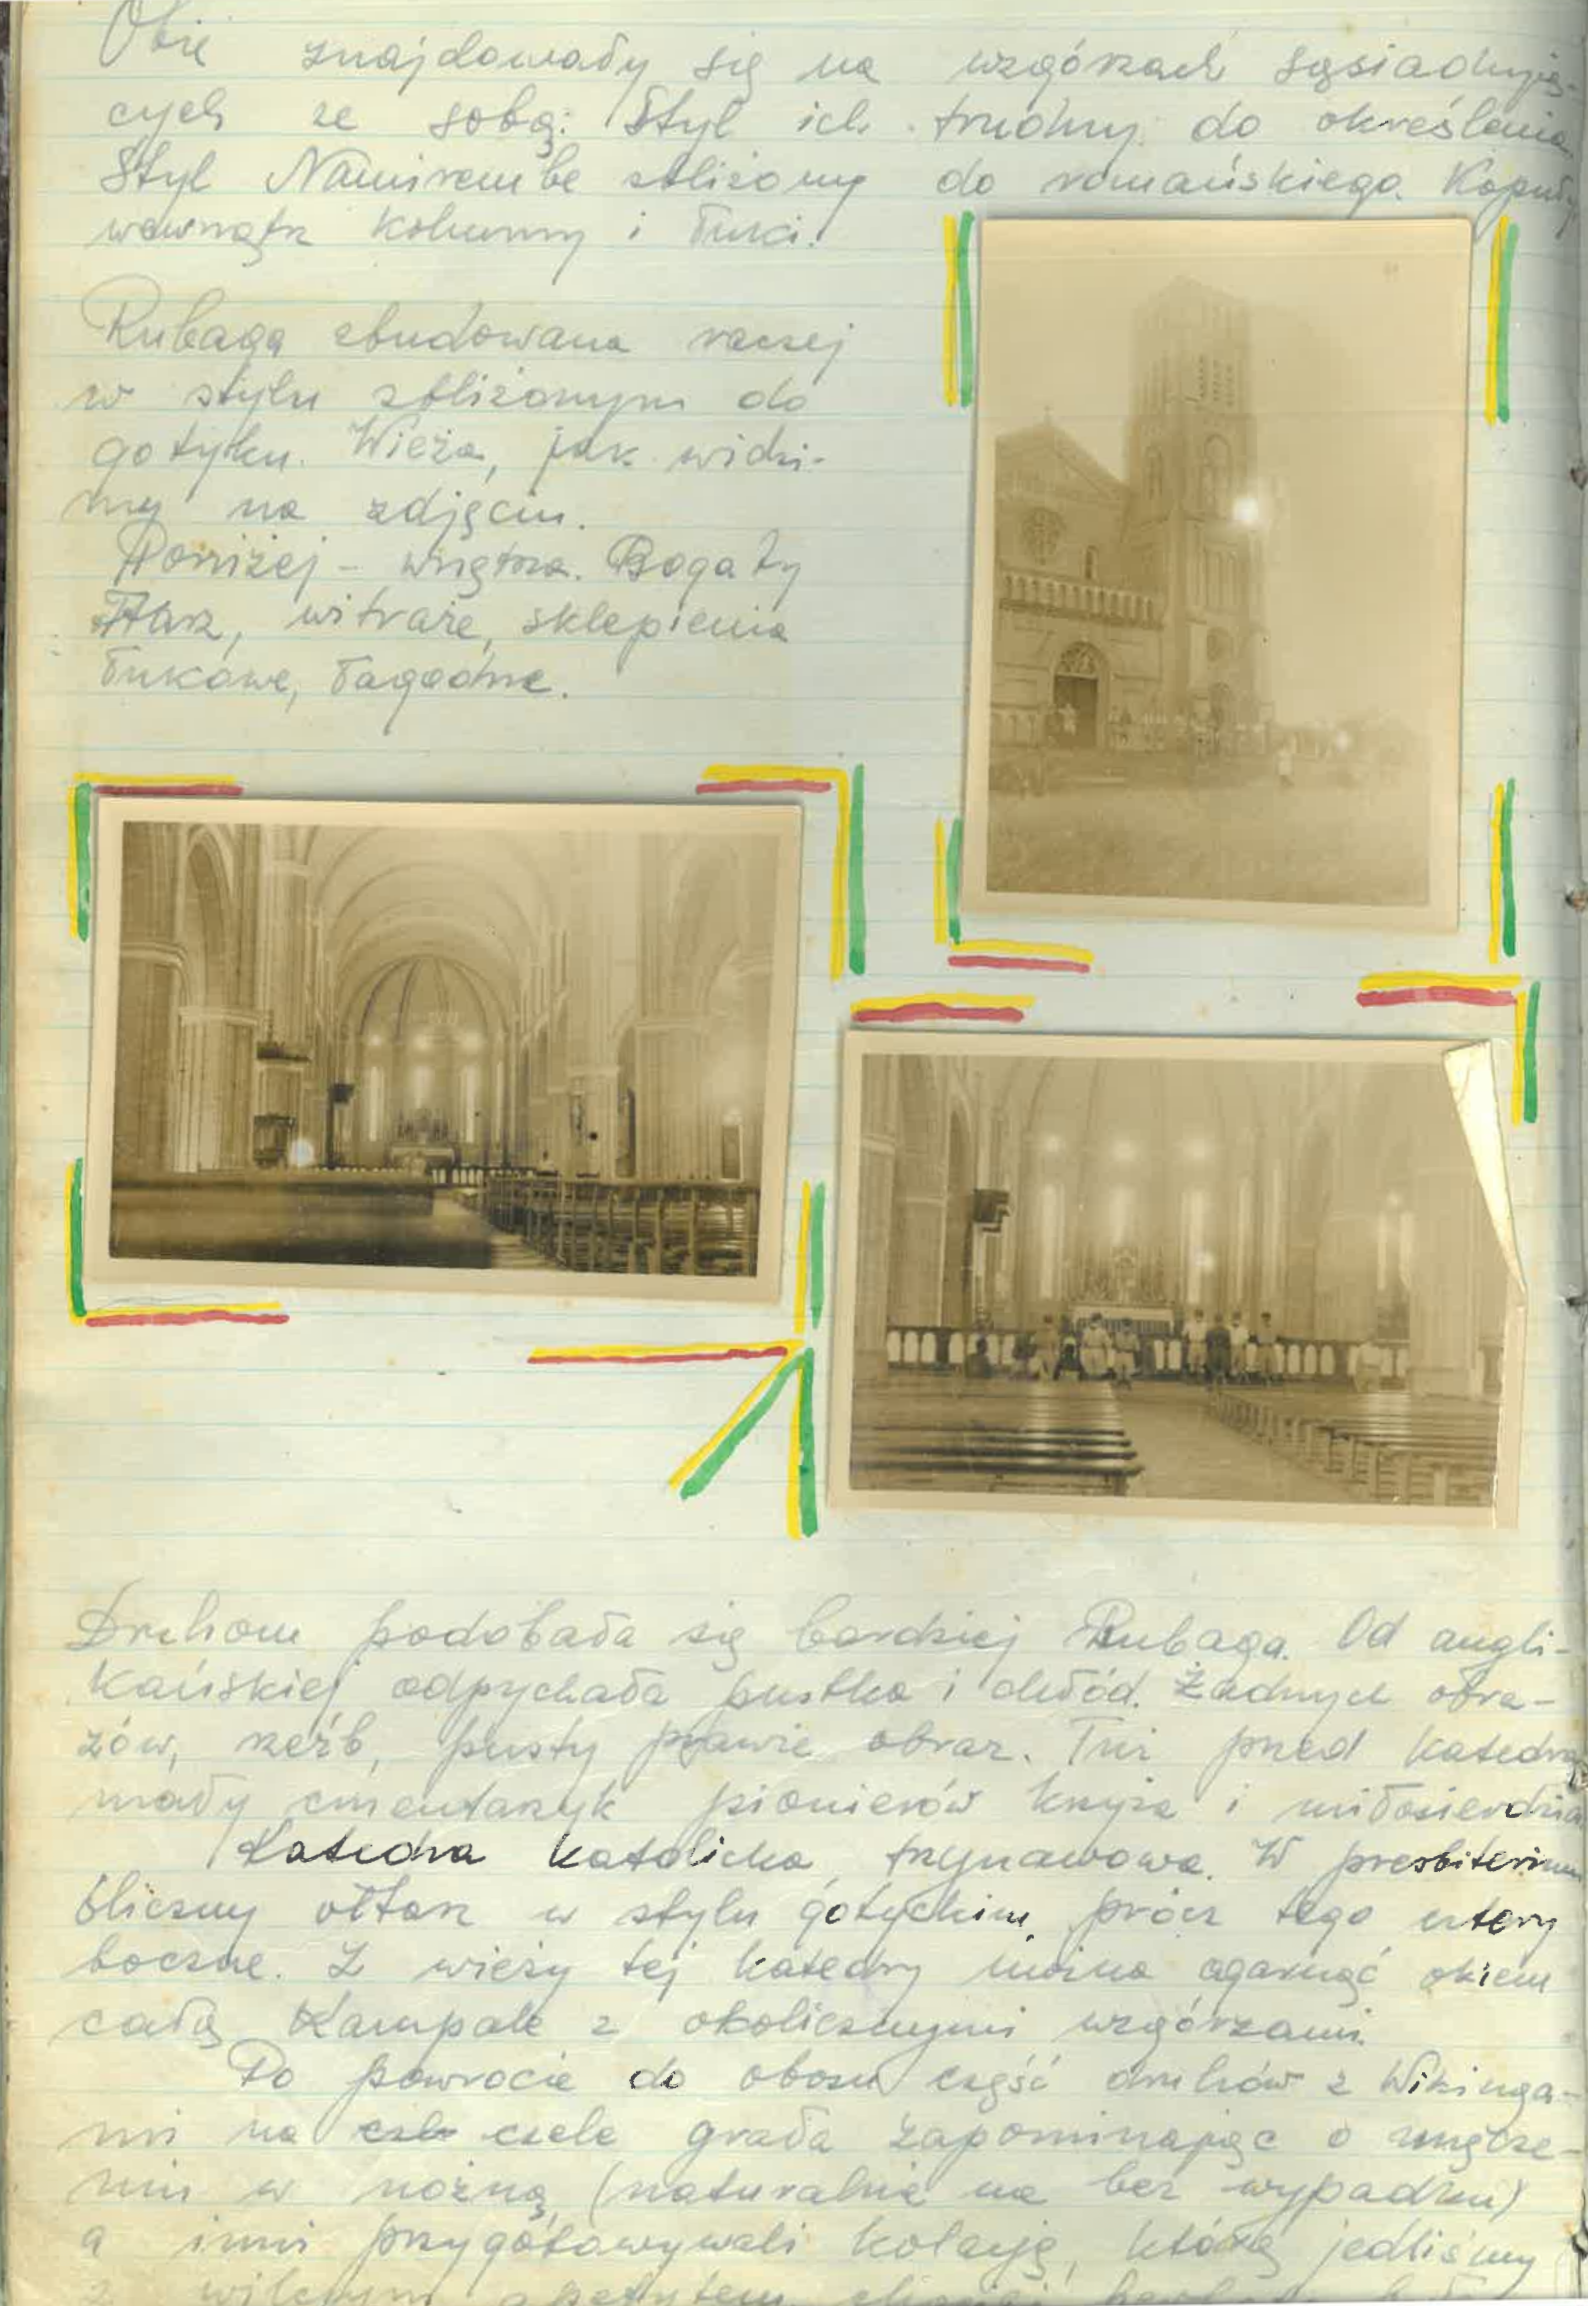 Obie znajdowały się na wzgórzach sąsiadują-
cych ze sobą. Styl ich trudny do określenia
Styl Namirembe zbliżony do romańskiego. Kopuły
wewnątrz kolumny i łuki.
Rubaga zbudowana raczej
w stylu zbliżonym do
gotyku. Wieża, jak widzi-
my na zdjęciu.
Poniżej - wnętrza. Bogaty
ołtarz, witraże, sklepienia
łukowe, łagodne.
Druhom podobała się bardziej Rubaga. Od angli-
kańskiej odpychała pustka i chłód. Żadnych obra-
zów, rzeźb, pusty prawie obraz. Tuż przed katedrą
mały cmentarzyk pionierów krzyża i miłosierdzia
Katedra katolicka trzynawowa. W presbiterium
śliczny ołtarz w stylu gotyckim, prócz tego
boczne. Z wieży tej katedry można ogarnąć okiem
całą Kampalę z okolicznymi wzgórzami.
Po powrocie do obozu część druhów z Wikinga-
mi na czele grała zapominając o zmęcze-
niu w nożną (naturalnie nie bez wypadku)
a inni przygotowywali kolację, którą jedliśmy
z wilczym apetytem